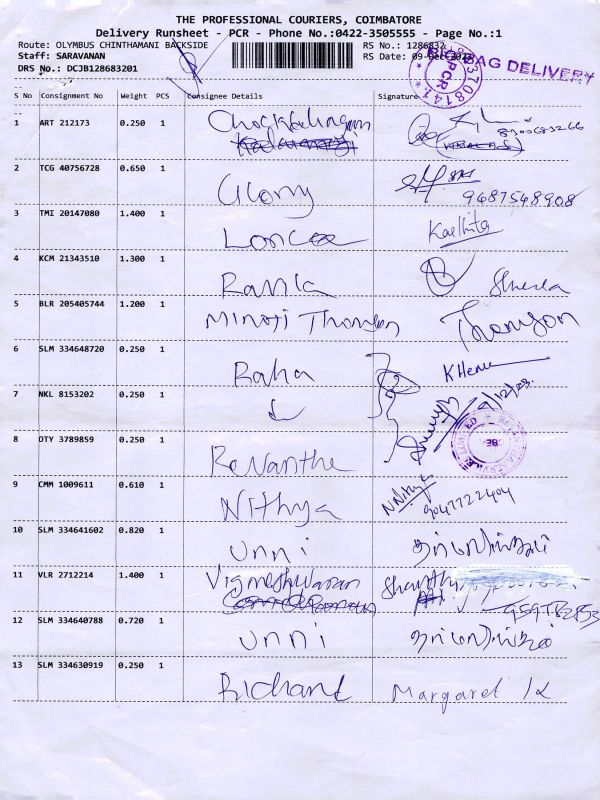 THE PROFESSIONAL COURIERS, COIMBATORE
Delivery Runsheet - PCR - Phone No.:0422-3505555 - Page No.:1
Route: OLYMBUS CHINTHAMANI BACKSIDE RS No.: 1286832
Staff: SARAVANAN RS Date: 09-Dec-20
DRS No.: DCJB128683201
BIG BAG DELIVERY
PCR
S No Consignment No Weight PCS Consignee Details Signature
1 ART 212173 0.250 1 Chockalingam
2 TCG 40756728 0.650 1 Glorry 9487548908
3 TMI 20147080 1.400 1 Kaethita
4 KCM 21343510 1.300 1 Sheela
5 BLR 205405744 1.200 1 Minoji Thomson Thomson
6 SLM 334648720 0.250 1
7 NKL 8153202 0.250 1 9/12/23
8 DTY 3789859 0.250 1 Revanthe
9 CMM 1009611 0.610 1 Nithya N.Nithya
9047722404
10 SLM 334641602 0.820 1 Unni
11 VLR 2712214 1.400 1 Vigneshwaran Shanthi
12 SLM 334640788 0.720 1 Unni
13 SLM 334630919 0.250 1 Richard Margaret